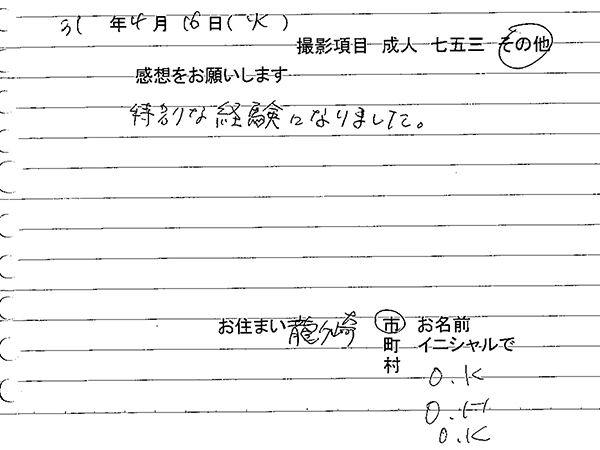 31 年4月16日(火)
撮影項目 成人 七五三 その他
感想をお願いします
特別な経験になりました。
お住まい 龍ケ崎 市 お名前
町 イニシャルで
村
O.K
O.H
O.K